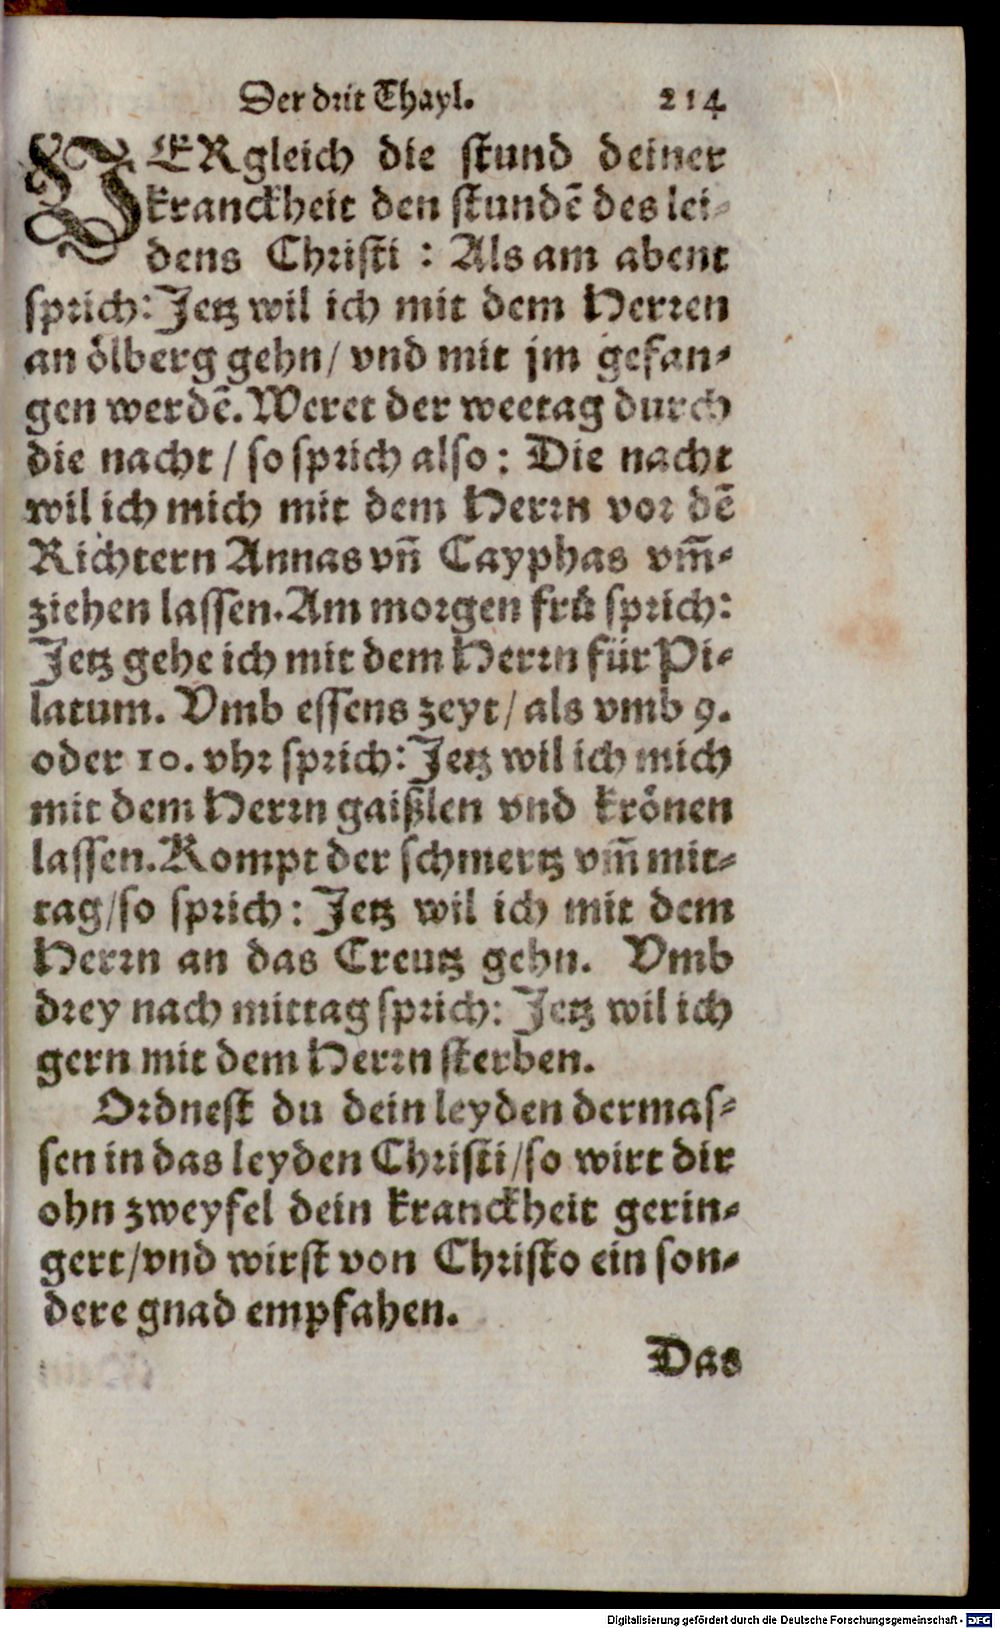 Der drit Thayl. 214
VERgleich die stund deiner
kranckheit den stundẽ des lei-
dens Christi : Als am abent
sprich: Jetz wil ich mit dem Herren
an ölberg gehn/ vnd mit jm gefan-
gen werdẽ. Weret der weetag durch
die nacht / so sprich also : Die nacht
wil ich mich mit dem Herrn vor dẽ
Richtern Annas vñ Cayphas vm̃-
ziehen lassen. Am morgen frů sprich:
Jetz gehe ich mit dem Herrn für Pi-
latum. Vmb essens zeyt/ als vmb 9.
oder 10. vhr sprich: Jetz wil ich mich
mit dem Herrn gaißlen vnd krönen
lassen. Kompt der schmertz vm̃ mit-
tag/so sprich: Jetz wil ich mit dem
Herrn an das Creutz gehn. Vmb
drey nach mittag sprich: Jetz wil ich
gern mit dem Herrn sterben.
Ordnest du dein leyden dermas-
sen in das leyden Christi/so wirt dir
ohn zweyfel dein kranckheit gerin-
gert/vnd wirst von Christo ein son-
dere gnad empfahen.
Das
Digitalisierung gefördert durch die Deutsche Forschungsgemeinschaft - DFG